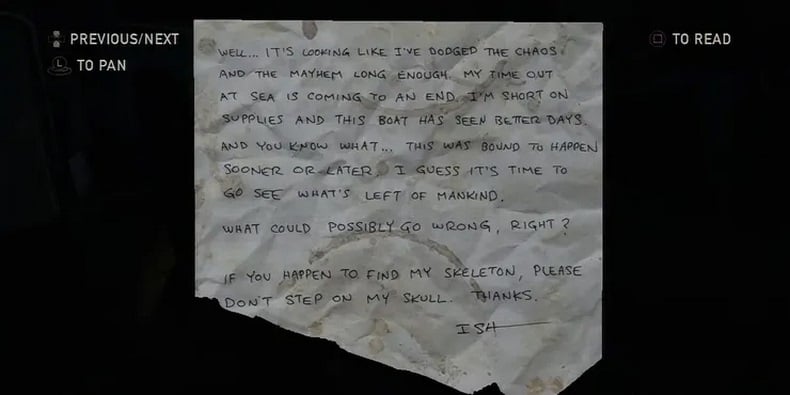 PREVIOUS/NEXT
TO PAN
TO READ
WELL... IT'S LOOKING LIKE I'VE DODGED THE CHAOS
AND THE MAYHEM LONG ENOUGH. MY TIME OUT
AT SEA IS COMING TO AN END. I'M SHORT ON
SUPPLIES AND THIS BOAT HAS SEEN BETTER DAYS.
AND YOU KNOW WHAT... THIS WAS BOUND TO HAPPEN
SOONER OR LATER. I GUESS IT'S TIME TO
GO SEE WHAT'S LEFT OF MANKIND.
WHAT COULD POSSIBLY GO WRONG, RIGHT?
IF YOU HAPPEN TO FIND MY SKELETON, PLEASE
DON'T STEP ON MY SKULL. THANKS.
ISH